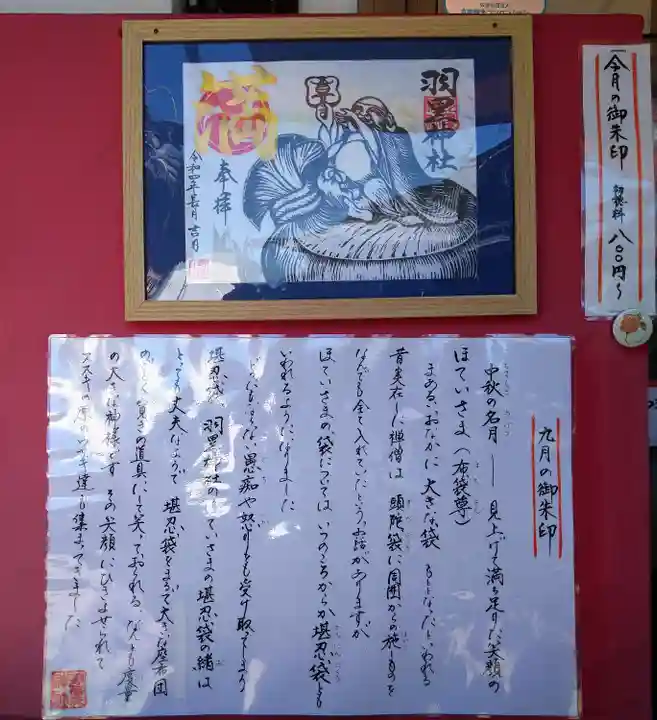 今月の御朱印
初穂料
八〇〇円〜
羽黒神社
満
奉拝
令和四年長月吉日
九月の御朱印
中秋の名月 ー 見上げて満ち足りた笑顔の
ほていさま(布袋尊)
まあるいおなかに大きな袋 もととなったといわれる
昔実在した禅僧は 頭陀袋に周囲からの施しものを
なんでも全て入れていたという話がありますが
ほていさまの袋については いつのころからか堪忍袋とも
いわれるようになりました
愚痴や怒りも受け取ってしまう
堪忍袋 羽黒神社のほていさまの堪忍袋の緒は
とっても丈夫なようで 堪忍袋をまるで大きな座布団
の道具にして笑っておられる なんとも度量
の大きな神様です その笑顔にひきよせられて
ススキの原のウサギ達も集まってきました